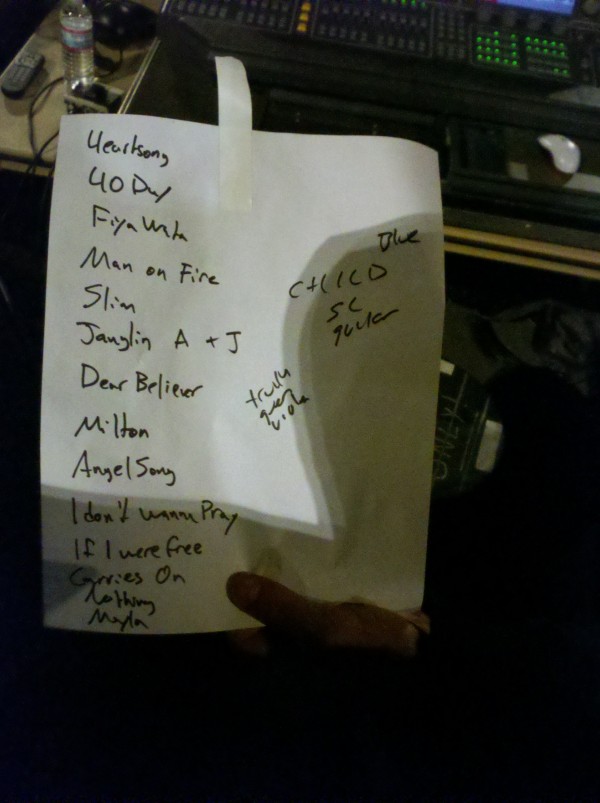 Heartsong
40 Day
Fiya Wata
Man on Fire
Slim
Janglin A + J
Dear Believer
Milton
Angel Song
I don't wanna Pray
If I were free
Carries On
Nothing
Mayla
Blue
CHILD
truth